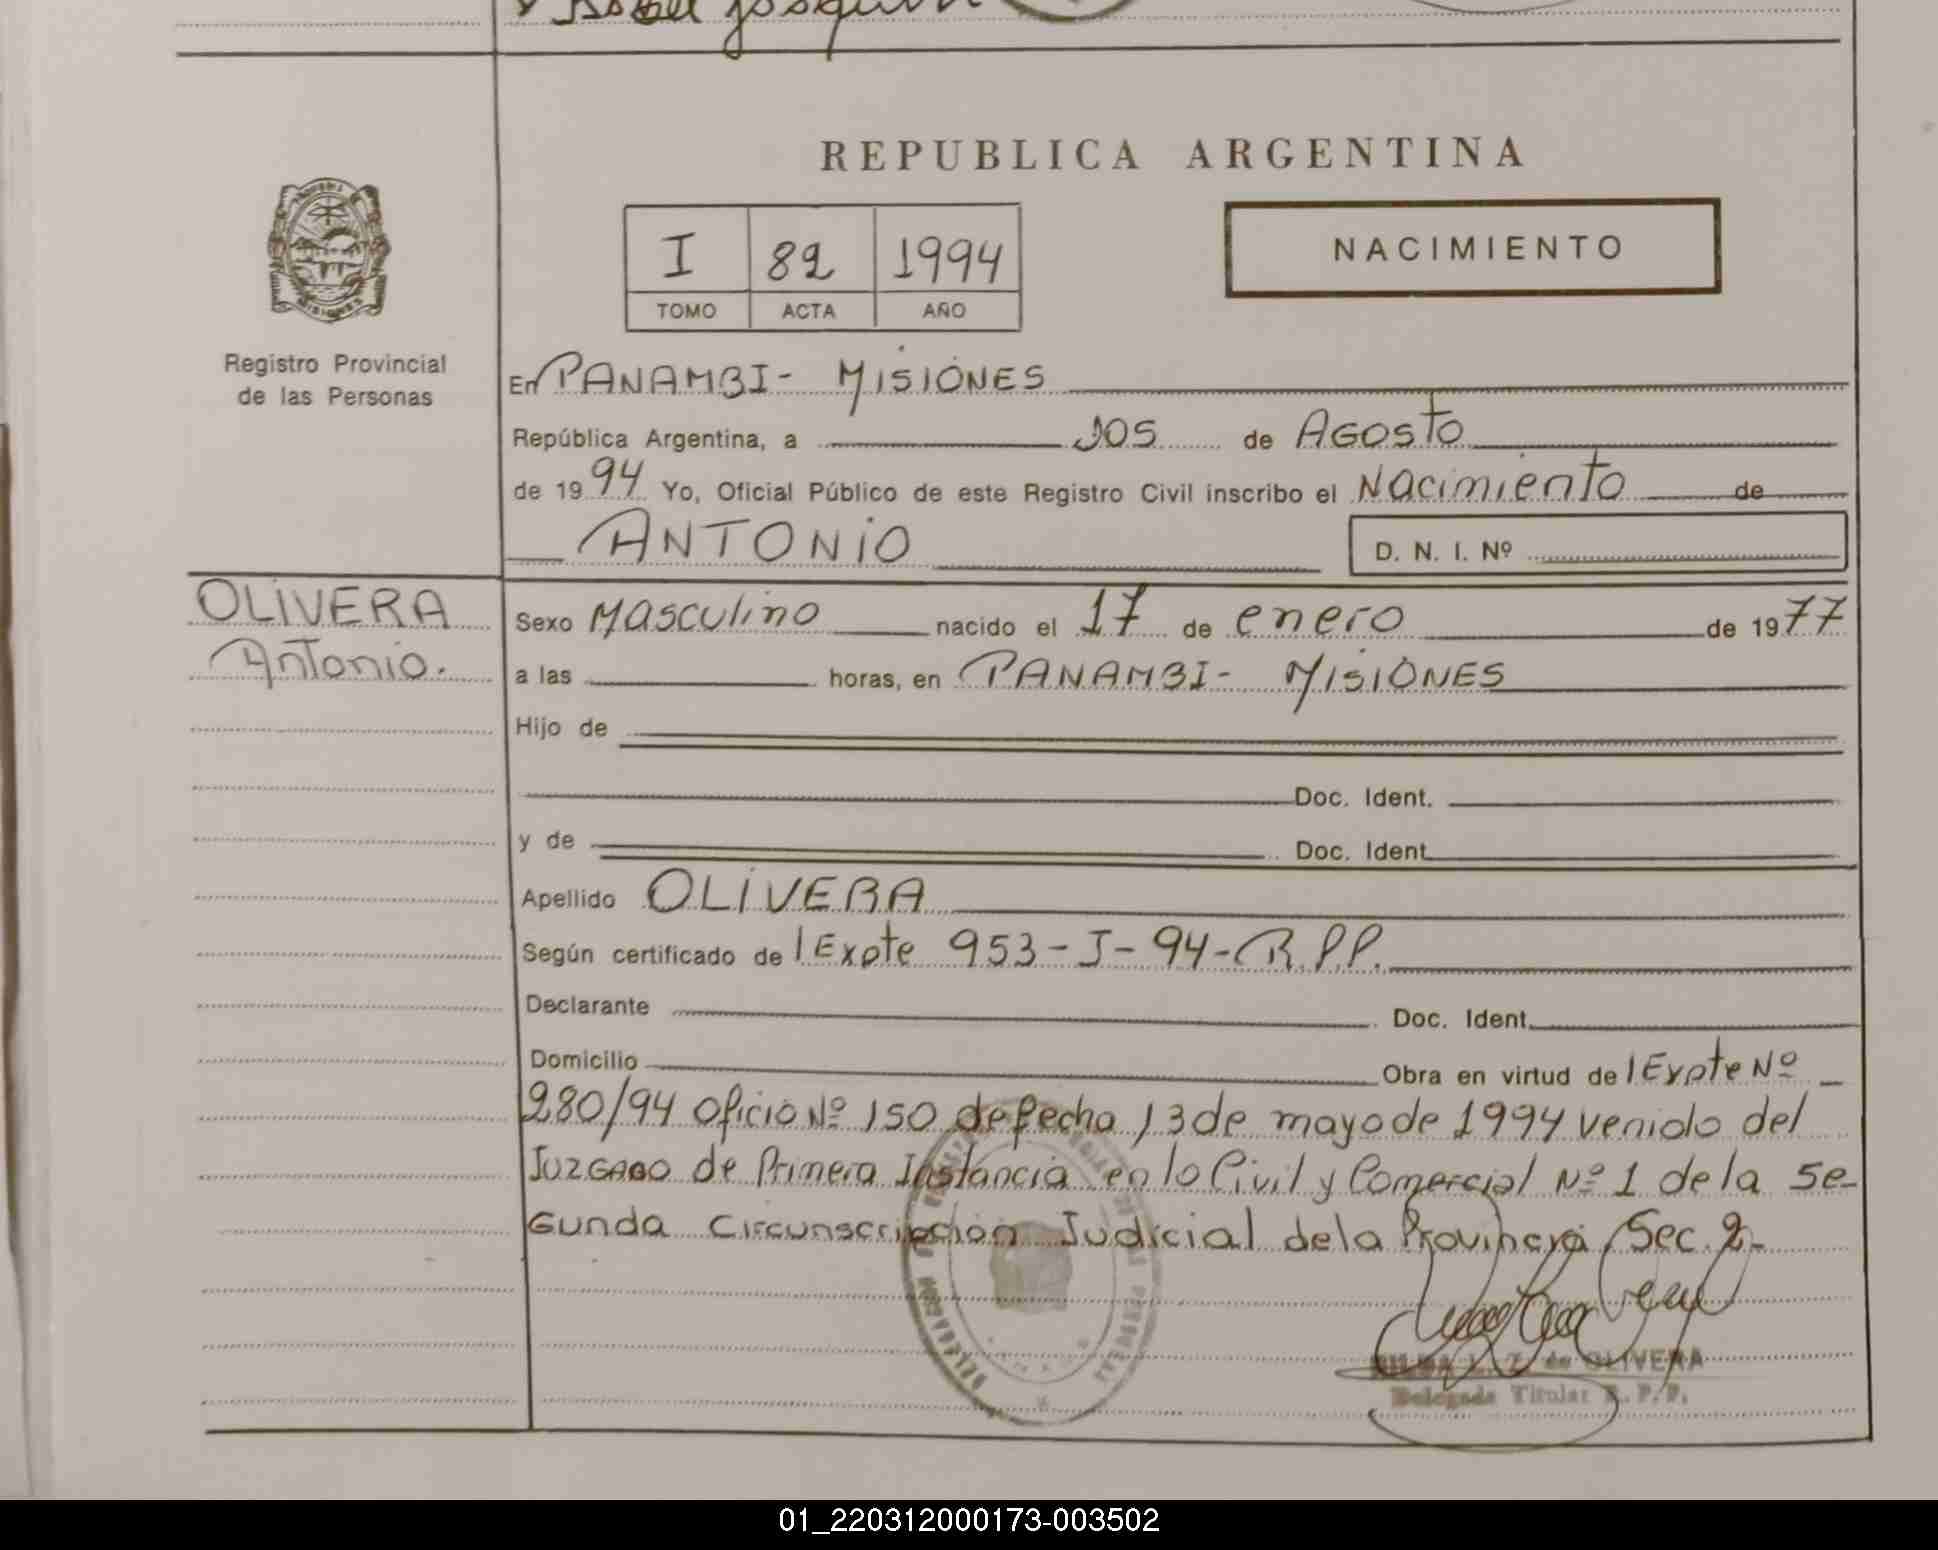 REPUBLICA ARGENTINA
I 82 1994
TOMO ACTA AÑO
NACIMIENTO
Registro Provincial
de las Personas
En PANAMBI - MISIONES
República Argentina, a DOS de AGOSTO
de 1994 Yo, Oficial Público de este Registro Civil inscribo el Nacimiento de
ANTONIO D. N. I. Nº
OLIVERA
Antonio.
Sexo Masculino nacido el 17 de enero de 1977
a las horas, en PANAMBI - MISIONES
Hijo de
Doc. Ident.
y de Doc. Ident.
Apellido OLIVERA
Según certificado de Expte 953-I-94-R.P.P.
Declarante Doc. Ident.
Domicilio Obra en virtud de Expte Nº
280/94 Oficio Nº 150 de fecha 13 de mayo de 1994 venido del
JUZGADO de Primera Instancia en lo Civil y Comercial Nº 1 de la Se-
Gunda Circunscripción Judicial de la Provincia, Sec. 2-
L. Z. de OLIVERA
Delegada Titular R.P.P.
01_220312000173-003502